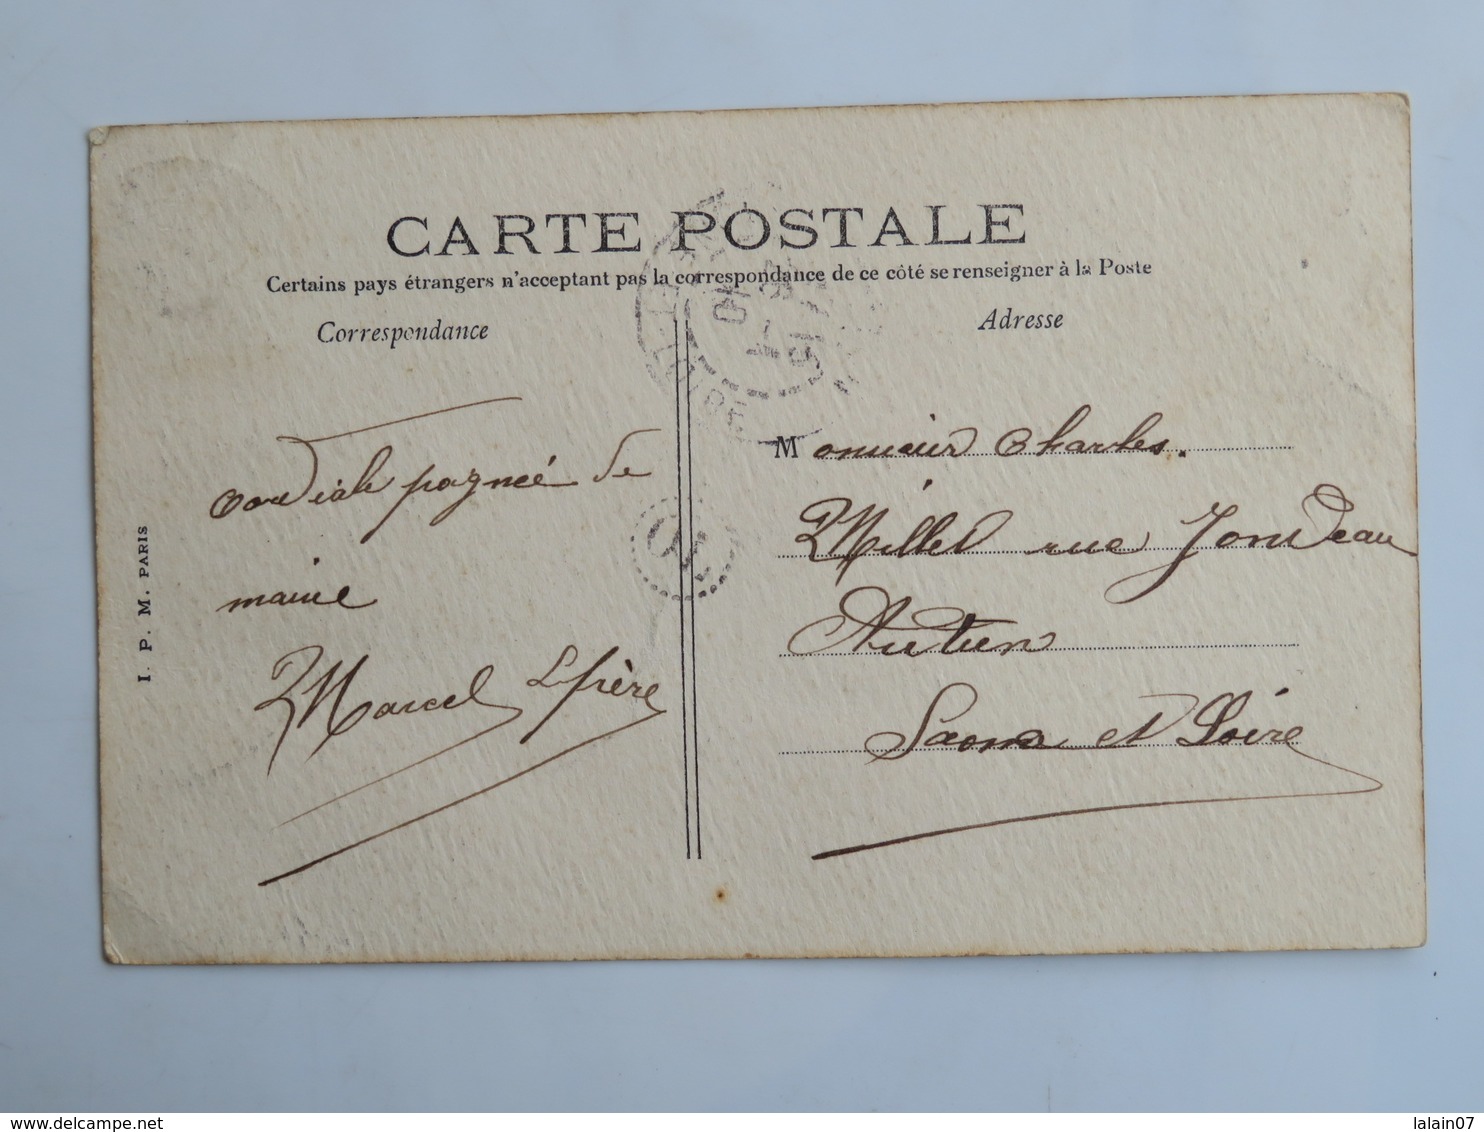 CARTE POSTALE
Certains pays étrangers n'acceptant pas la correspondance de ce côté se renseigner à la Poste
Correspondance
Adresse
cordiale pognée de
maine
Marcel Lefrère
Monsieur Charles.
Millet rue Jondeau
Autun
Saone et Loire
I. P. M. PARIS
delcampe.net
lalain07